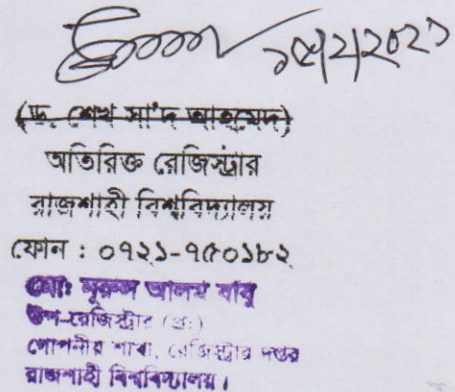 ১৫/2/2021
(ড. শেখ সা'দ আহমেদ)
অতিরিক্ত রেজিস্ট্রার
রাজশাহী বিশ্ববিদ্যালয়
ফোন : ০৭২১-৭৫০১৮২
মো: নূরুল আলম বাবু
উপ-রেজিস্ট্রার (প্র:)
গোপনীয় শাখা, রেজিস্ট্রার দপ্তর
রাজশাহী বিশ্ববিদ্যালয়।